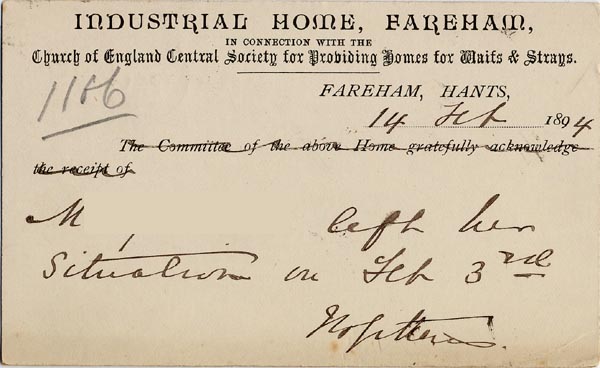 INDUSTRIAL HOME, FAREHAM,
IN CONNECTION WITH THE
Church of England Central Society for Providing Homes for Waifs & Strays.
1106
FAREHAM, HANTS,
14 Feb 1894
The Committee of the above Home gratefully acknowledge
the receipt of
M left her
Situation on Feb 3rd